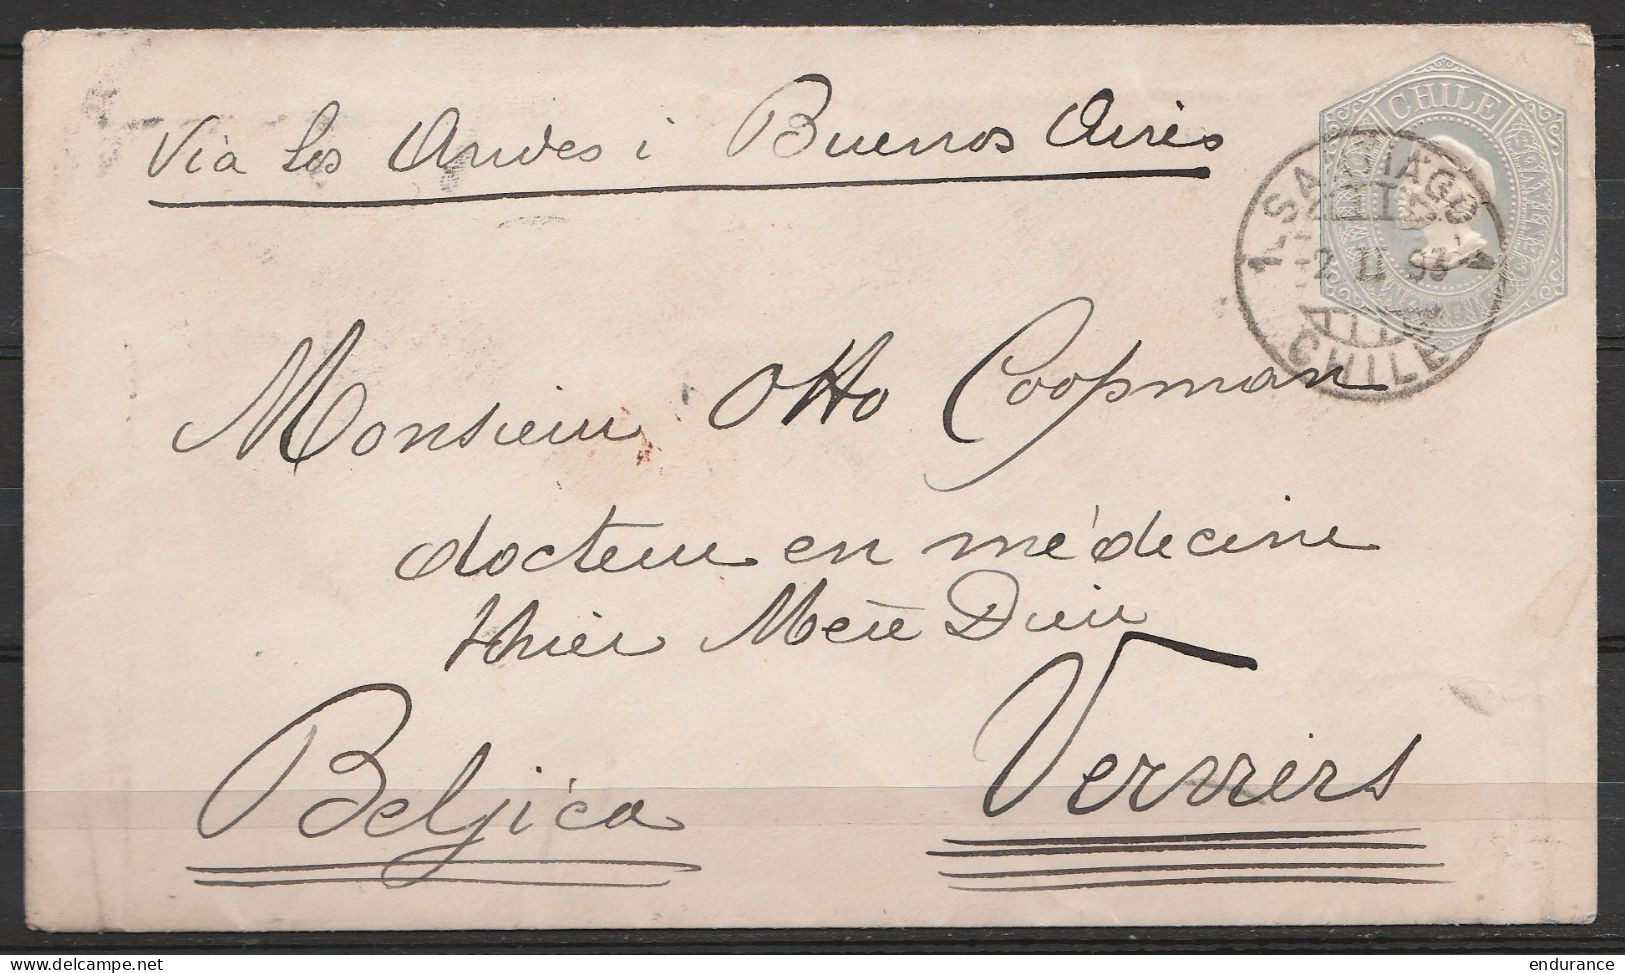 Via los Andes i Buenos Aires
CHILE
1-SANTIAGO
2 II 93
CHILE
Monsieur Otto Coopman
docteur en médecine
thier Mère Dieu
Verviers
Belgica
endurance
delcampe.net